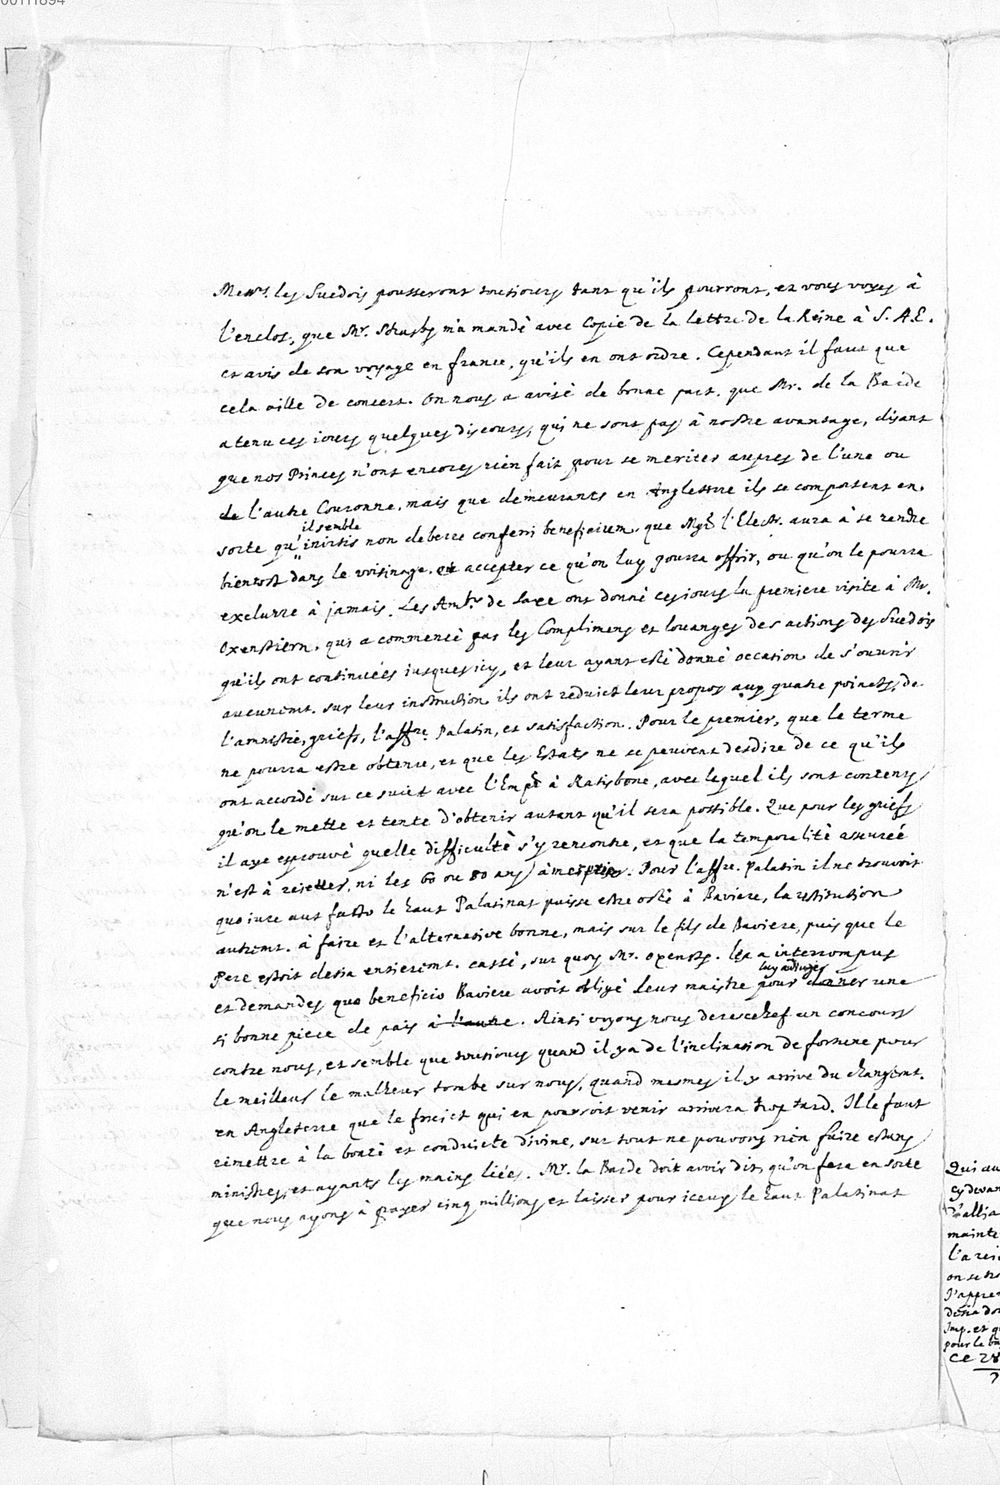 00111894
Messrs. les Suedois pousseront tousiours tant qu'ils pourront, et vous voyes à
l'enclos, que Mr. m'a mandè avec Copie de la lettre de la Reine à S. A. E.
et avis de son voyage en france, qu'ils en ont ordre. Cependant il faut que
cela aille de concert. On nous a avisè de bonne part, que Mr. de la Barde
a tenu ces iours quelques discours, qui ne sont pas à nostre avantage, disant
que nos Princes n'ont encores rien fait pour se meriter aupres de l'une ou
de l'autre Couronne, mais que demeurants en Angleterre ils se comportent en
il semble
sorte qu' invitis non debere conferri beneficium, que Mgr l'Elect. aura à se rendre
bientost dans le voisinage, et accepter ce qu'on luy pourra offrir, ou qu'on le pourra
exclurre à jamais. Les Ambrs de Saxe ont donné ces iours la premiere visite à Mr.
Oxenstiern, qui a commencè par les Complimens et louanges des actions des Suedois
qu'ils ont continuées iusques icy, et leur ayant estè donné occasion de s'ouvrir
aucunemt. sur leur instruction ils ont reduict leur propos aux quatre poincts, de
l'amnistie, griefs, l'affre. Palatin, et satisfaction. Pour le premier, que le terme
ne pourra estre obtenu, et que les Estats ne se peuvent desdire de ce qu'ils
ont accordè sur ce suiet avec l'Empr à Ratisbone, avec lequel ils sont contens
qu'on le mette et tente d'obtenir autant qu'il sera possible. Que pour les griefs
il aye esprouvé quelle difficultè s'y rencontre, et que la temporalitè asseurée
n'est à reietter, ni les 60 ou 80 ans à mespriser. Pour l'affre. Palatin il ne trouvoit
quo iure aut facto le haut Palatinat puisse estre ostè à Baviere, la restitution
autremt. à faire et l'alternative bonne, mais sur le fils de Baviere, puis que le
Pere estoit desia entieremt. cassè, sur quoy Mr. Oxenst. les a interrompus
luy adiuger
et demandes quo beneficio Baviere avoit obligè leur maistre pour donner une
si bonne piece de pais à l'autre. Ainsi voyons nous derechef un concours
contre nous, et semble que tousiours quand il y a de l'inclination de fortune pour
le meilleur le malheur tombe sur nous, quand mesmes il y arrive du changemt.
en Angleterre que le fruict qui en pourroit venir arrivera trop tard. Il le faut
remettre à la bontè et conduicte divine, sur tout ne pouvons rien faire estans
ministres, et ayants les mains liées. Mr. la Barde doit avoir dit, qu'on fera en sorte
que nous ayons à payer cinq millions et laisser pour iceux le haut Palatinat
Qui au
cy devan
d'allia
mainte
on se
J'appre
desia do
Imp. et q
pour le
Ce 28